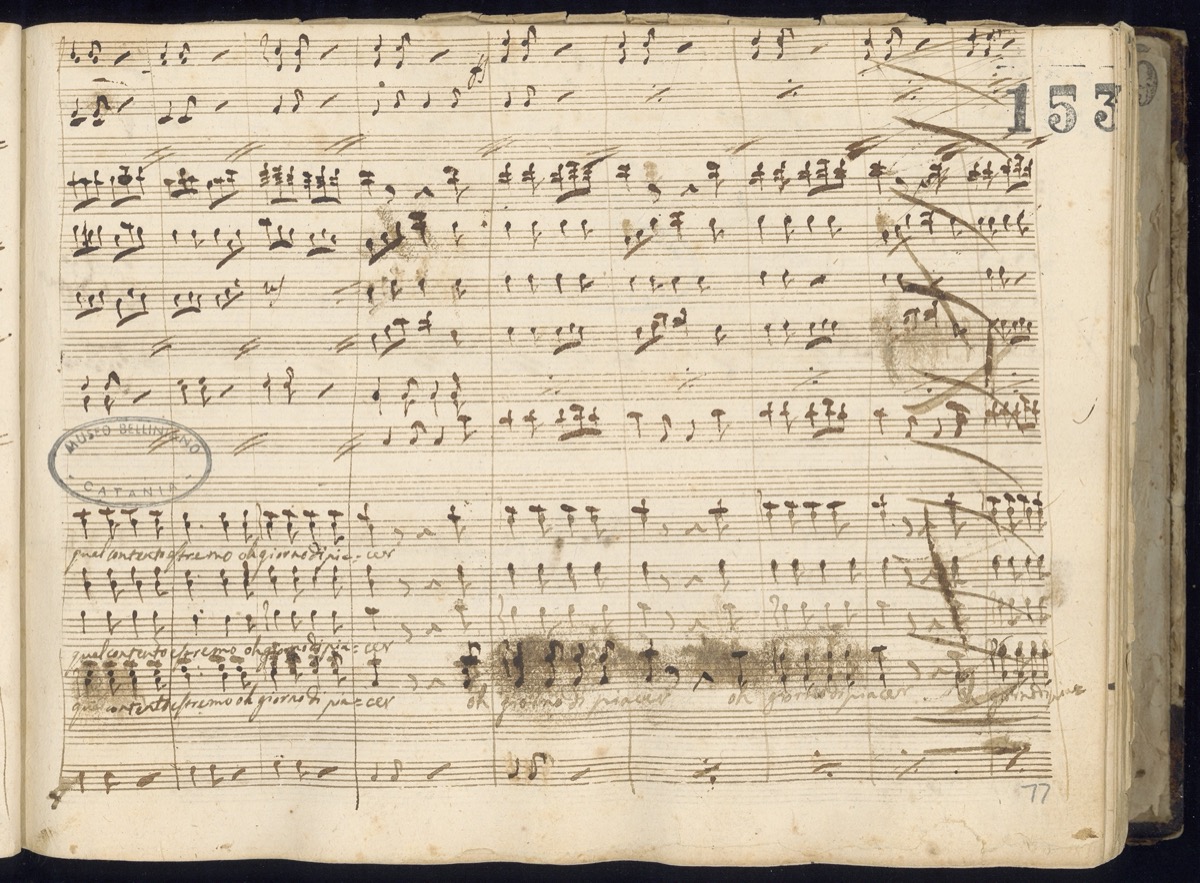 153
MUSEO BELLINIANO
CATANIA
qual contento estremo oh giorno di pia=cer
qual contento estremo oh giorno di pia=cer
qual contento estremo oh giorno di pia=cer oh giorno di piacer oh giorno di piacer
77